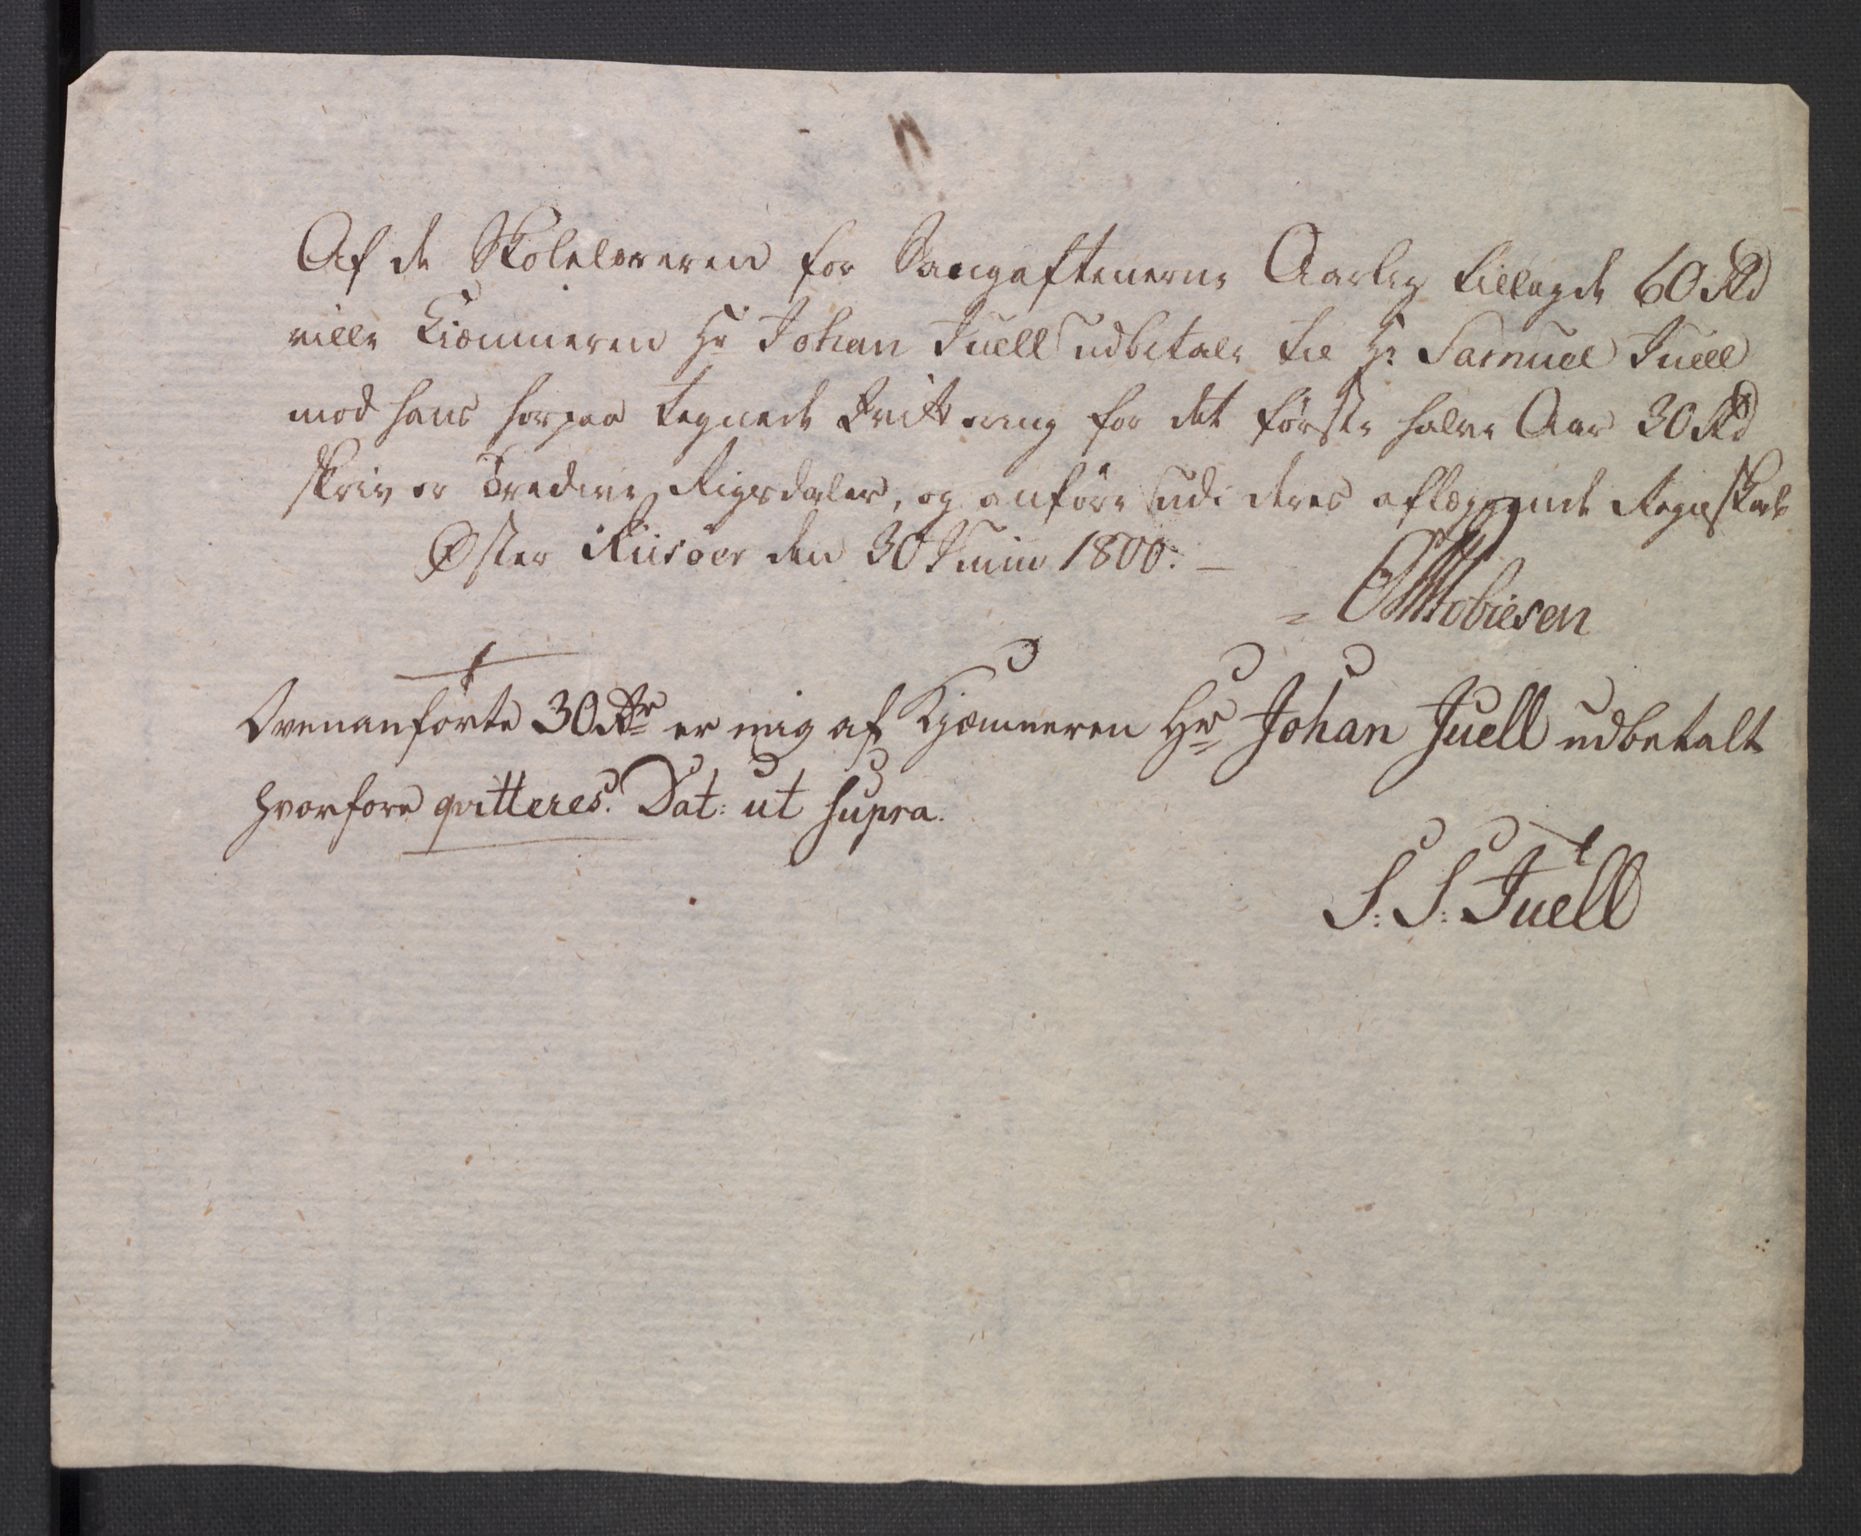 Af de Skolelereren for Sangaftenerne Aarlig tillagde 60 Rd
ville Kiemneren Hr Johan Juell udbetale til Hr. Samuel Juell
mod hans herpaa tegnede Qvittering for det første halve Aar 30 Rd
skriver Tredive Rigsdaler, og anføre udi deres aflæggende Regnskab
Øster Riisøer den 30 Junii 1800. —
Tobiesen
Ovenanførte 30 Rdr er mig af Kjæmneren Hr Johan Juell udbetalt
hvorfore qvitteres. Dat: ut supra.
S: S: Juell